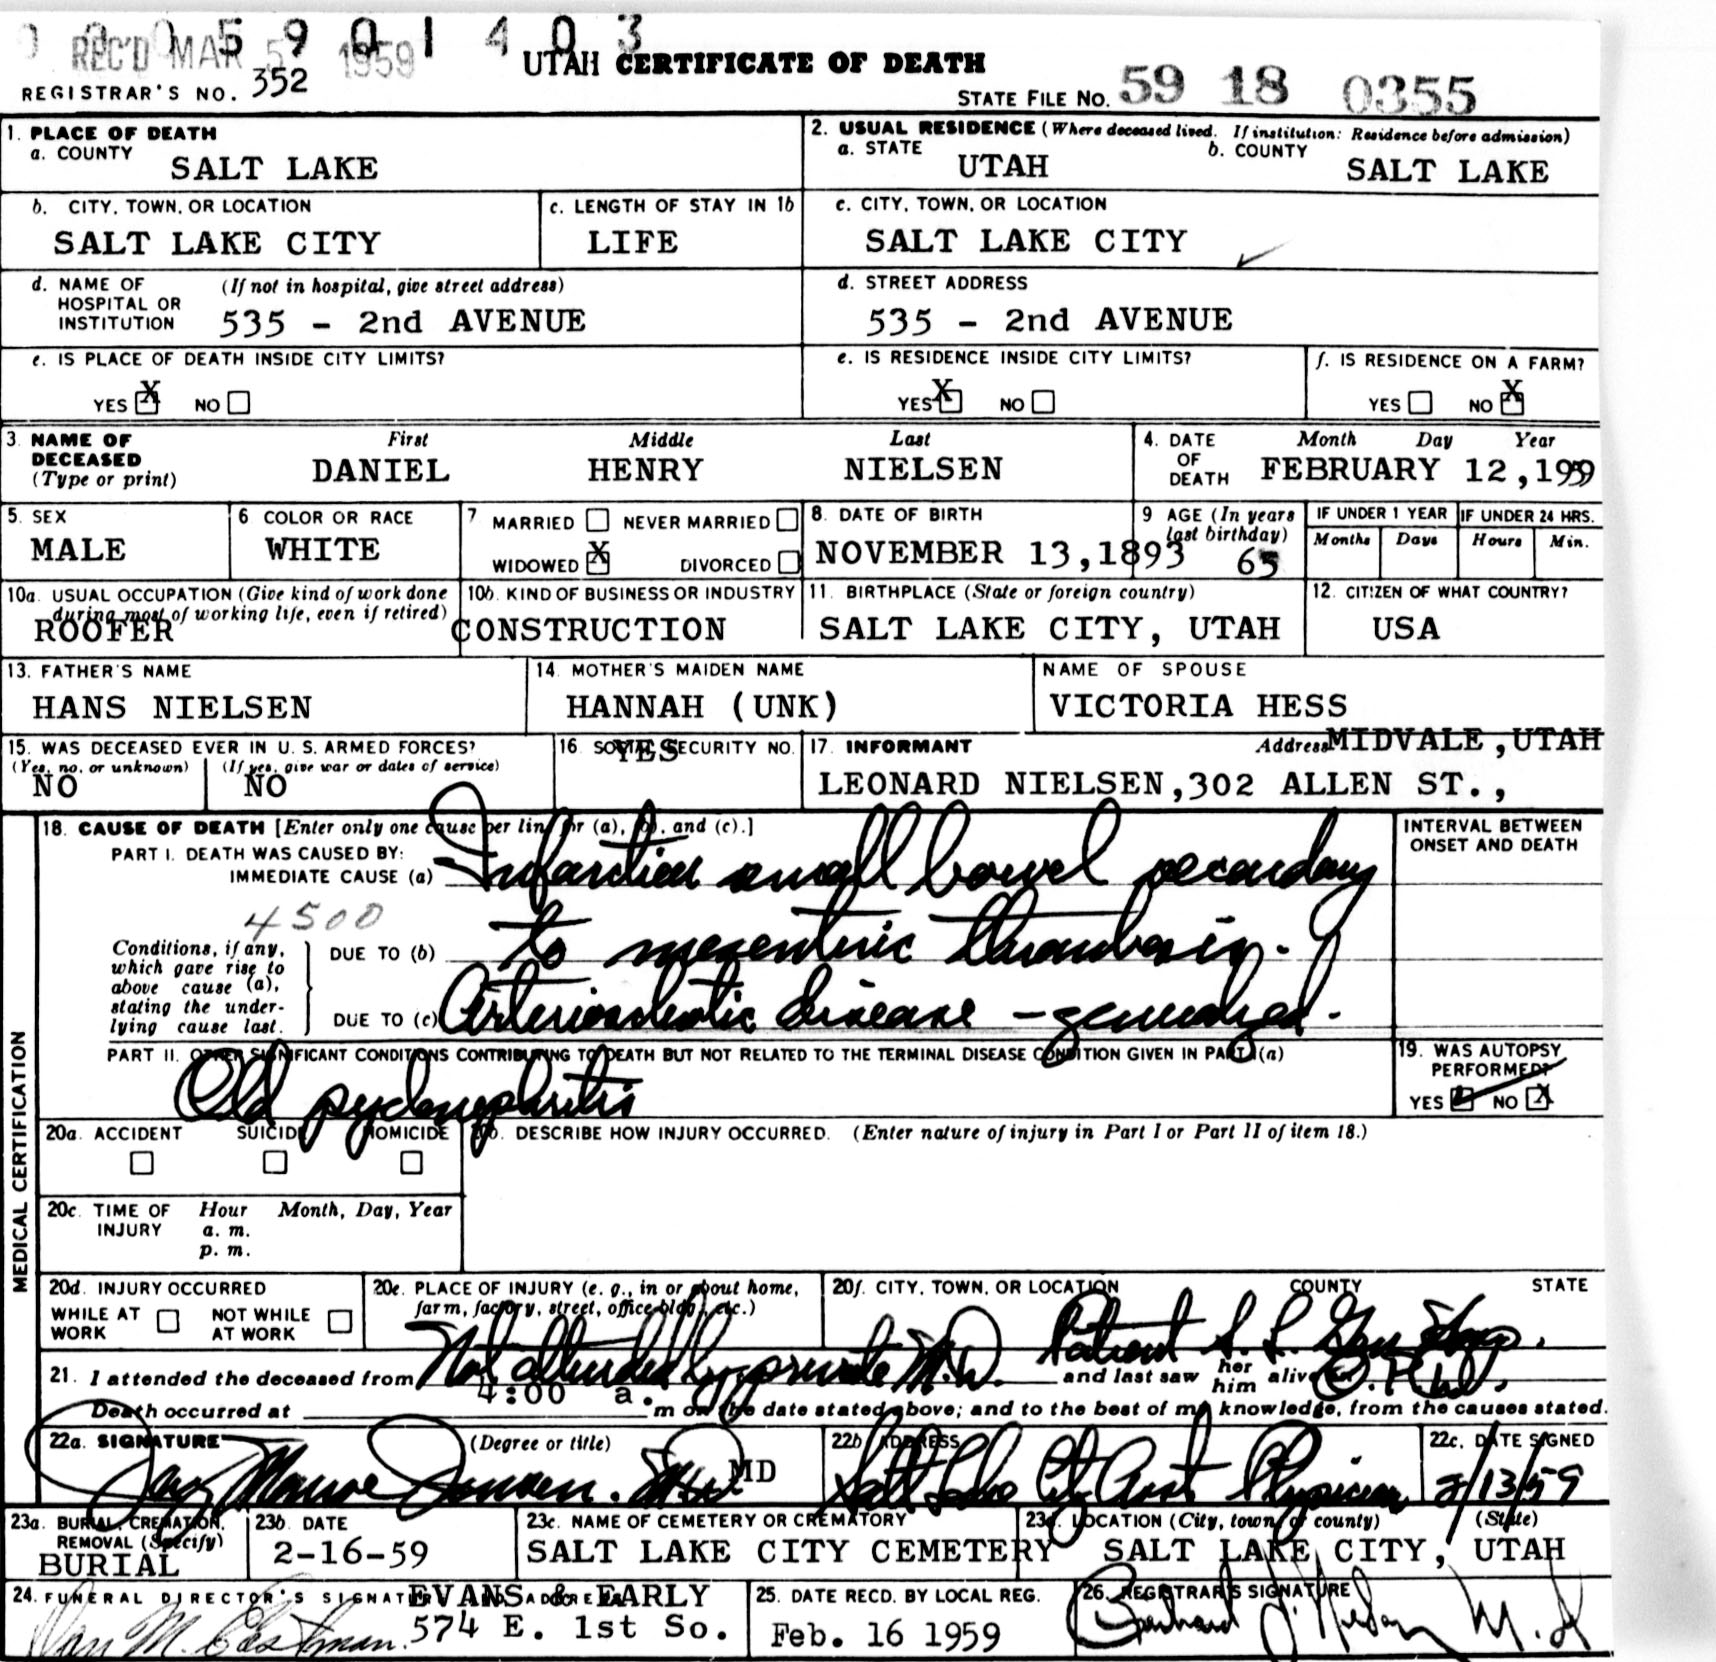 0 0 0 5 9 0 1 4 0 3
REC'D MAR 5 1959
UTAH CERTIFICATE OF DEATH
REGISTRAR'S NO. 352
STATE FILE NO. 59 18 0355
1. PLACE OF DEATH
a. COUNTY SALT LAKE
2. USUAL RESIDENCE (Where deceased lived. If institution: Residence before admission)
a. STATE UTAH b. COUNTY SALT LAKE
b. CITY, TOWN, OR LOCATION SALT LAKE CITY
c. LENGTH OF STAY IN 1b LIFE
c. CITY, TOWN, OR LOCATION SALT LAKE CITY
d. NAME OF HOSPITAL OR INSTITUTION (If not in hospital, give street address) 535 - 2nd AVENUE
d. STREET ADDRESS 535 - 2nd AVENUE
e. IS PLACE OF DEATH INSIDE CITY LIMITS?
YES X NO
e. IS RESIDENCE INSIDE CITY LIMITS?
YES X NO
f. IS RESIDENCE ON A FARM?
YES NO X
3. NAME OF DECEASED (Type or print)
First Middle Last
DANIEL HENRY NIELSEN
4. DATE OF DEATH Month Day Year
FEBRUARY 12,1959
5. SEX MALE
6 COLOR OR RACE WHITE
7 MARRIED NEVER MARRIED
WIDOWED X DIVORCED
8. DATE OF BIRTH NOVEMBER 13,1893
9 AGE (In years last birthday) 65
IF UNDER 1 YEAR Months Days
IF UNDER 24 HRS. Hours Min.
10a. USUAL OCCUPATION (Give kind of work done during most of working life, even if retired) ROOFER
10b. KIND OF BUSINESS OR INDUSTRY CONSTRUCTION
11. BIRTHPLACE (State or foreign country) SALT LAKE CITY, UTAH
12. CITIZEN OF WHAT COUNTRY? USA
13. FATHER'S NAME HANS NIELSEN
14. MOTHER'S MAIDEN NAME HANNAH (UNK)
NAME OF SPOUSE VICTORIA HESS
15. WAS DECEASED EVER IN U. S. ARMED FORCES?
(Yes, no, or unknown) NO
(If yes, give war or dates of service) NO
16. SOCIAL SECURITY NO. YES
17. INFORMANT Address MIDVALE ,UTAH
LEONARD NIELSEN,302 ALLEN ST.,
MEDICAL CERTIFICATION
18. CAUSE OF DEATH [Enter only one cause per line for (a), (b), and (c).]
PART I. DEATH WAS CAUSED BY:
IMMEDIATE CAUSE (a) Infarction small bowel secondary
4500
Conditions, if any, which gave rise to above cause (a), stating the underlying cause last.
DUE TO (b) to mesenteric thrombosis.
DUE TO (c) Arteriosclerotic disease - generalized.
INTERVAL BETWEEN ONSET AND DEATH
PART II. OTHER SIGNIFICANT CONDITIONS CONTRIBUTING TO DEATH BUT NOT RELATED TO THE TERMINAL DISEASE CONDITION GIVEN IN PART I (a)
Old pyelonephritis
19. WAS AUTOPSY PERFORMED?
YES NO X
20a. ACCIDENT SUICIDE HOMICIDE
20b. DESCRIBE HOW INJURY OCCURRED. (Enter nature of injury in Part I or Part II of item 18.)
20c. TIME OF INJURY Hour Month, Day, Year
a. m.
p. m.
20d. INJURY OCCURRED
WHILE AT WORK NOT WHILE AT WORK
20e. PLACE OF INJURY (e. g., in or about home, farm, factory, street, office bldg., etc.)
20f. CITY, TOWN, OR LOCATION COUNTY STATE
21. I attended the deceased from Not attended by private M.D. Patient S. L. Gen Hosp. and last saw her him alive
Death occurred at 4:00 a. m on the date stated above; and to the best of my knowledge, from the causes stated.
22a. SIGNATURE (Degree or title) MD
22b ADDRESS Salt Lake City Asst Physician
22c. DATE SIGNED 2/13/59
23a. BURIAL, CREMATION, REMOVAL (Specify) BURIAL
23b. DATE 2-16-59
23c. NAME OF CEMETERY OR CREMATORY SALT LAKE CITY CEMETERY
23d. LOCATION (City, town, or county) (State) SALT LAKE CITY, UTAH
24. FUNERAL DIRECTOR'S SIGNATURE AND ADDRESS EVANS & EARLY
574 E. 1st So.
25. DATE RECD. BY LOCAL REG. Feb. 16 1959
26. REGISTRAR'S SIGNATURE